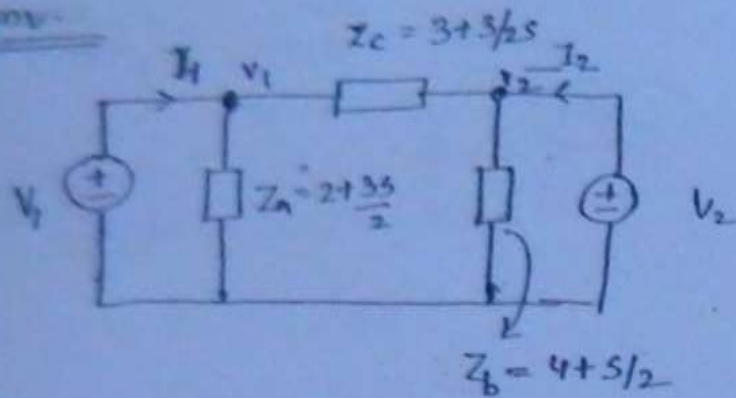 Zc = 3+3/2s
I1 V1 V2 I2
V1 + − Za = 2+3s/2 + − V2
Zb = 4+s/2